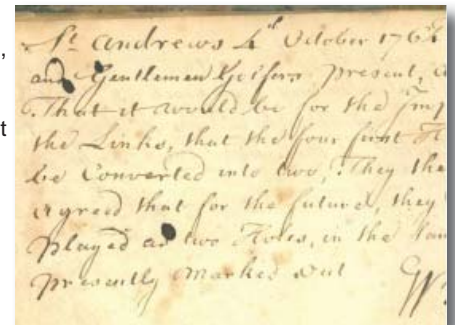 ,
t
St. Andrews 4th October 1764
and Gentlemen Golfers present,
That it would be for the Imp
the Links, that the four first
be Converted into two, They the
agreed that for the future, they
played as two Holes, in the
presently Marked out
W